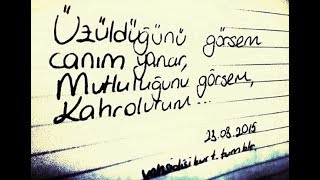 Üzüldüğünü görsem
canım yanar,
Mutluluğunu görsem,
Kahrolurum...
23.08.2015